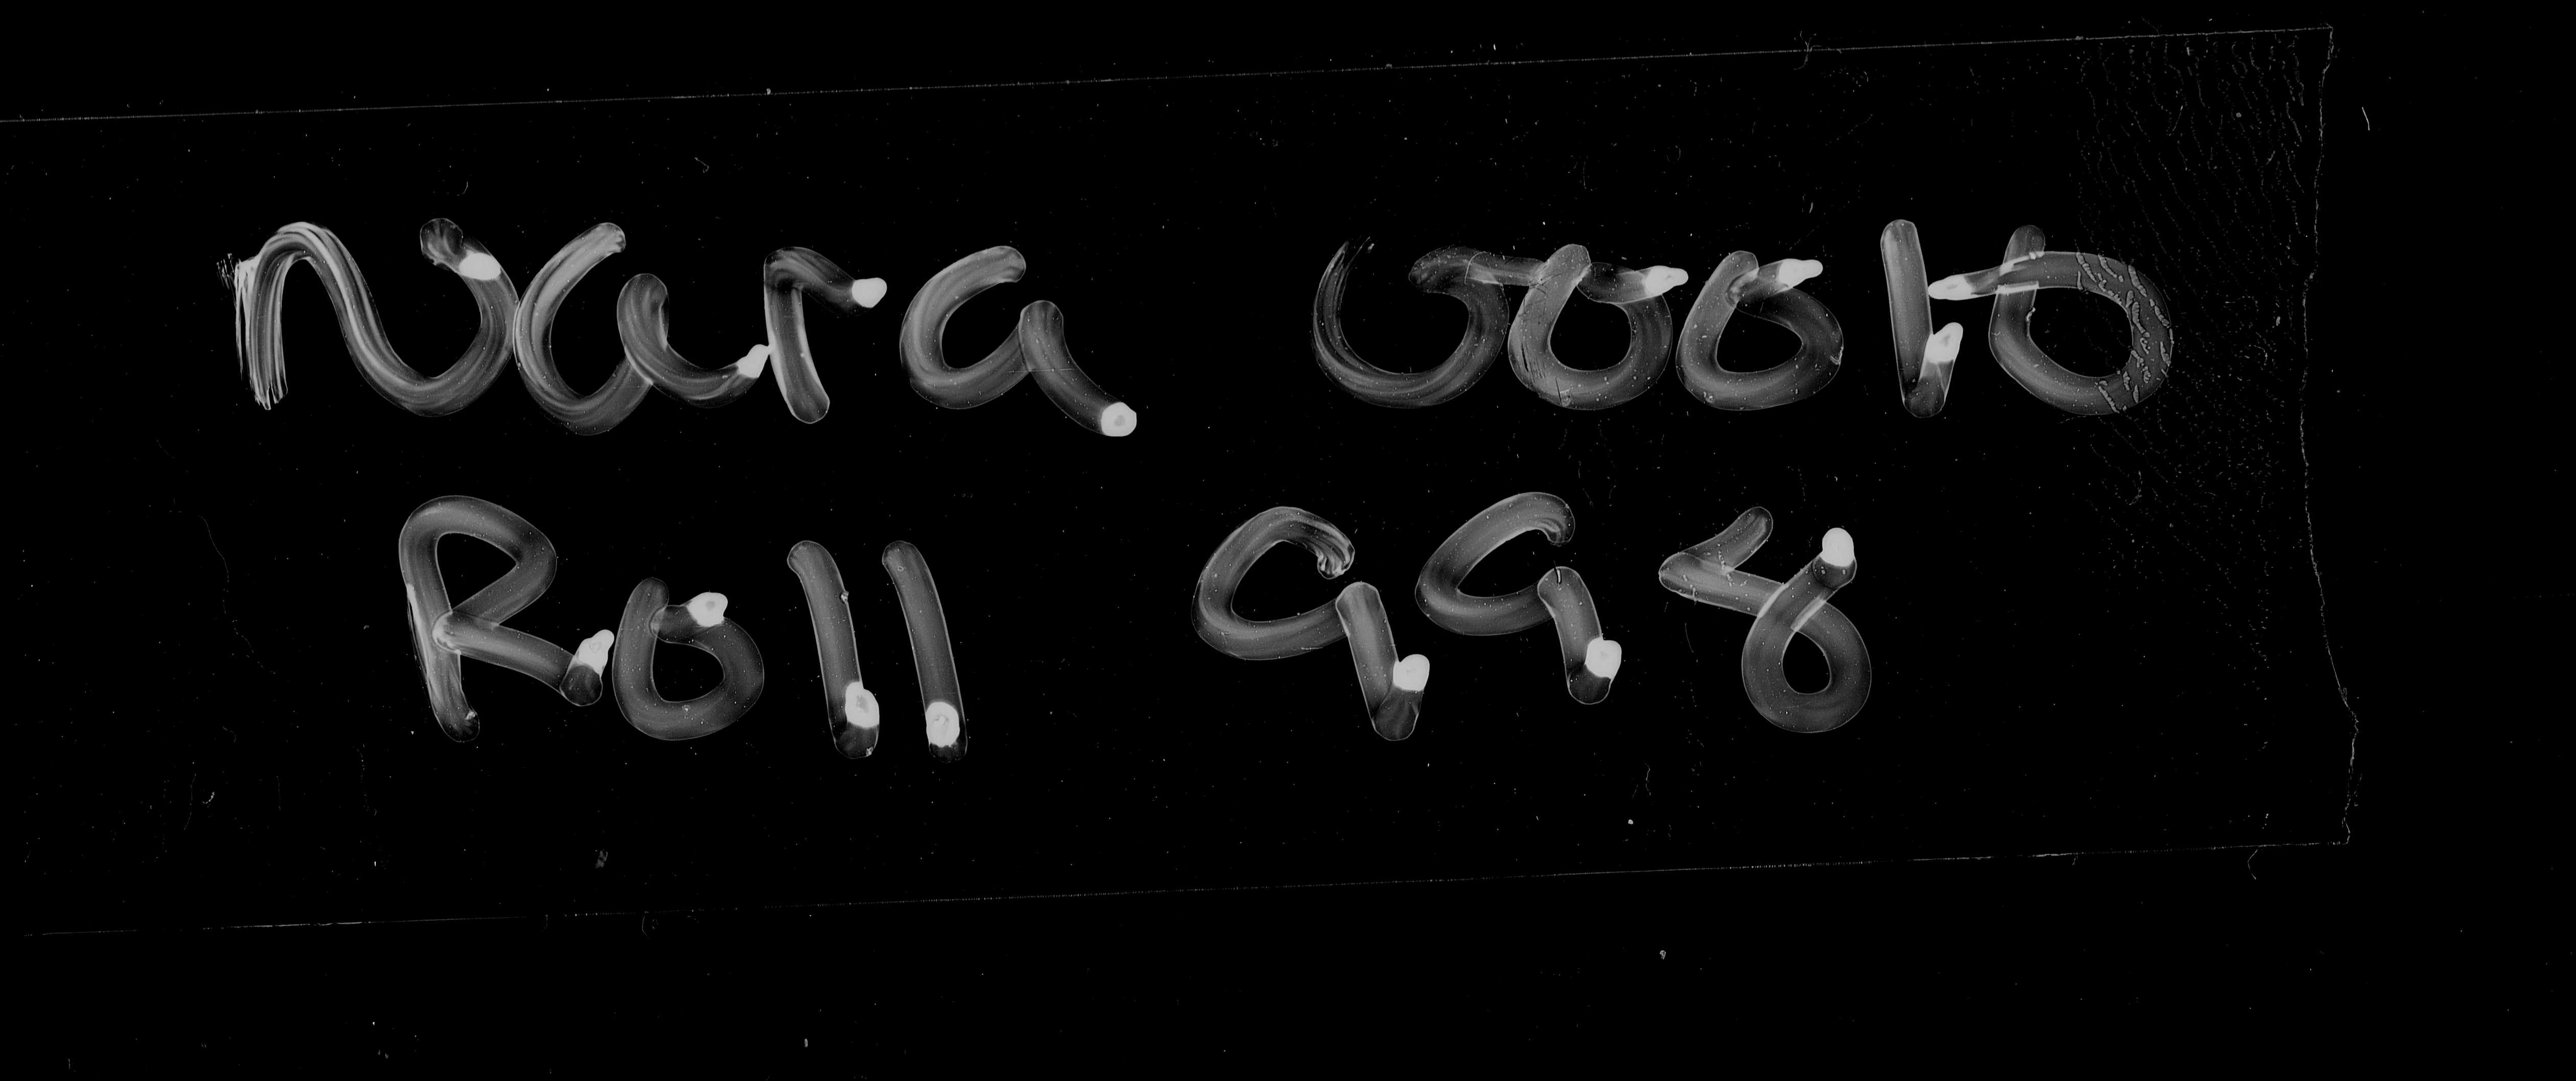 Nara 00010
Roll 998